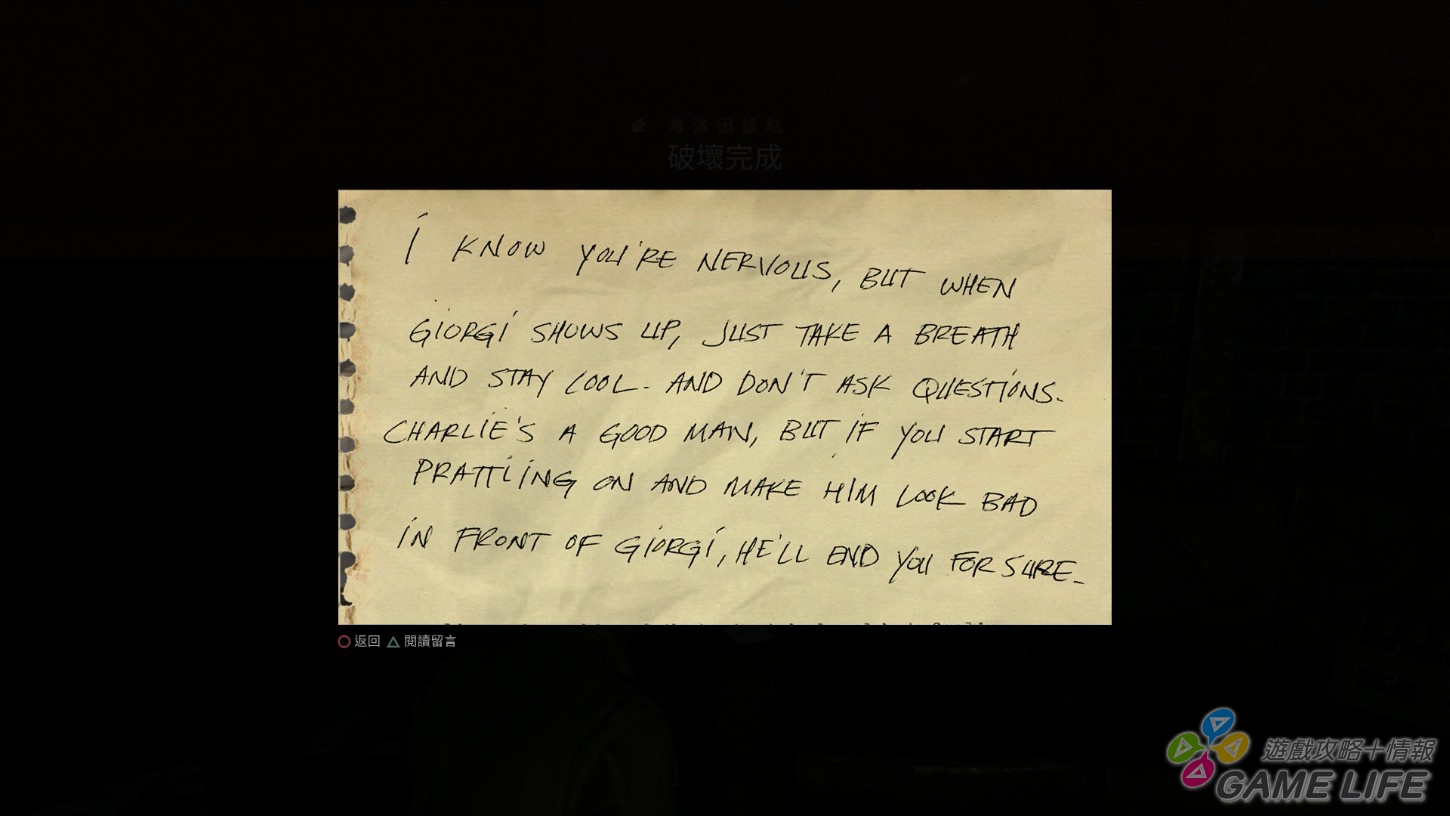 海洛因據點
破壞完成
I KNOW YOU'RE NERVOUS, BUT WHEN
GIORGI SHOWS UP, JUST TAKE A BREATH
AND STAY COOL. AND DON'T ASK QUESTIONS.
CHARLIE'S A GOOD MAN, BUT IF YOU START
PRATTLING ON AND MAKE HIM LOOK BAD
IN FRONT OF GIORGI, HE'LL END YOU FOR SURE.
返回 閱讀留言
遊戲攻略+情報
GAME LIFE